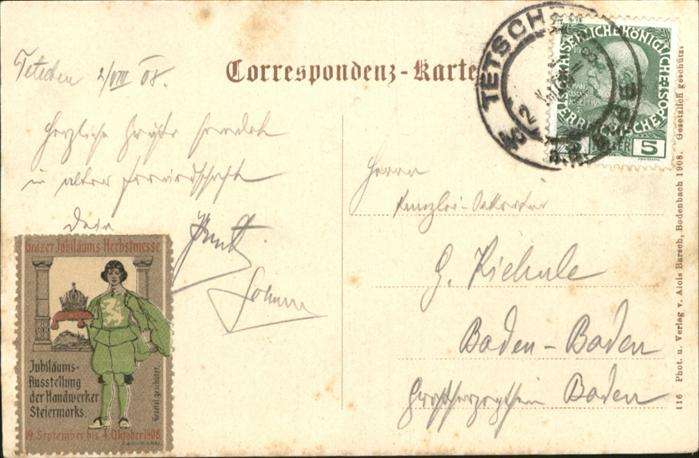 Tetschen 2/VIII 08.
Correspondenz-Karte
TETSCH
KAISERLICHE KÖNIGLICHE
ÖSTERREICHISCHE POST
5
Herzliche Grüße sendet
in alter Freundschaft
Dein
Herrn
Kanzlei-Sekretär
G. Kichule
Baden-Baden
Großherzogthum Baden
Grazer Jubiläums-Herbstmesse
Jubiläums-
Ausstellung
der Handwerker
Steiermarks
September bis 4. Oktober 1908
116 Phot. u. Verlag v. Alois Barsch, Bodenbach 1908. Gesetzlich geschützt.